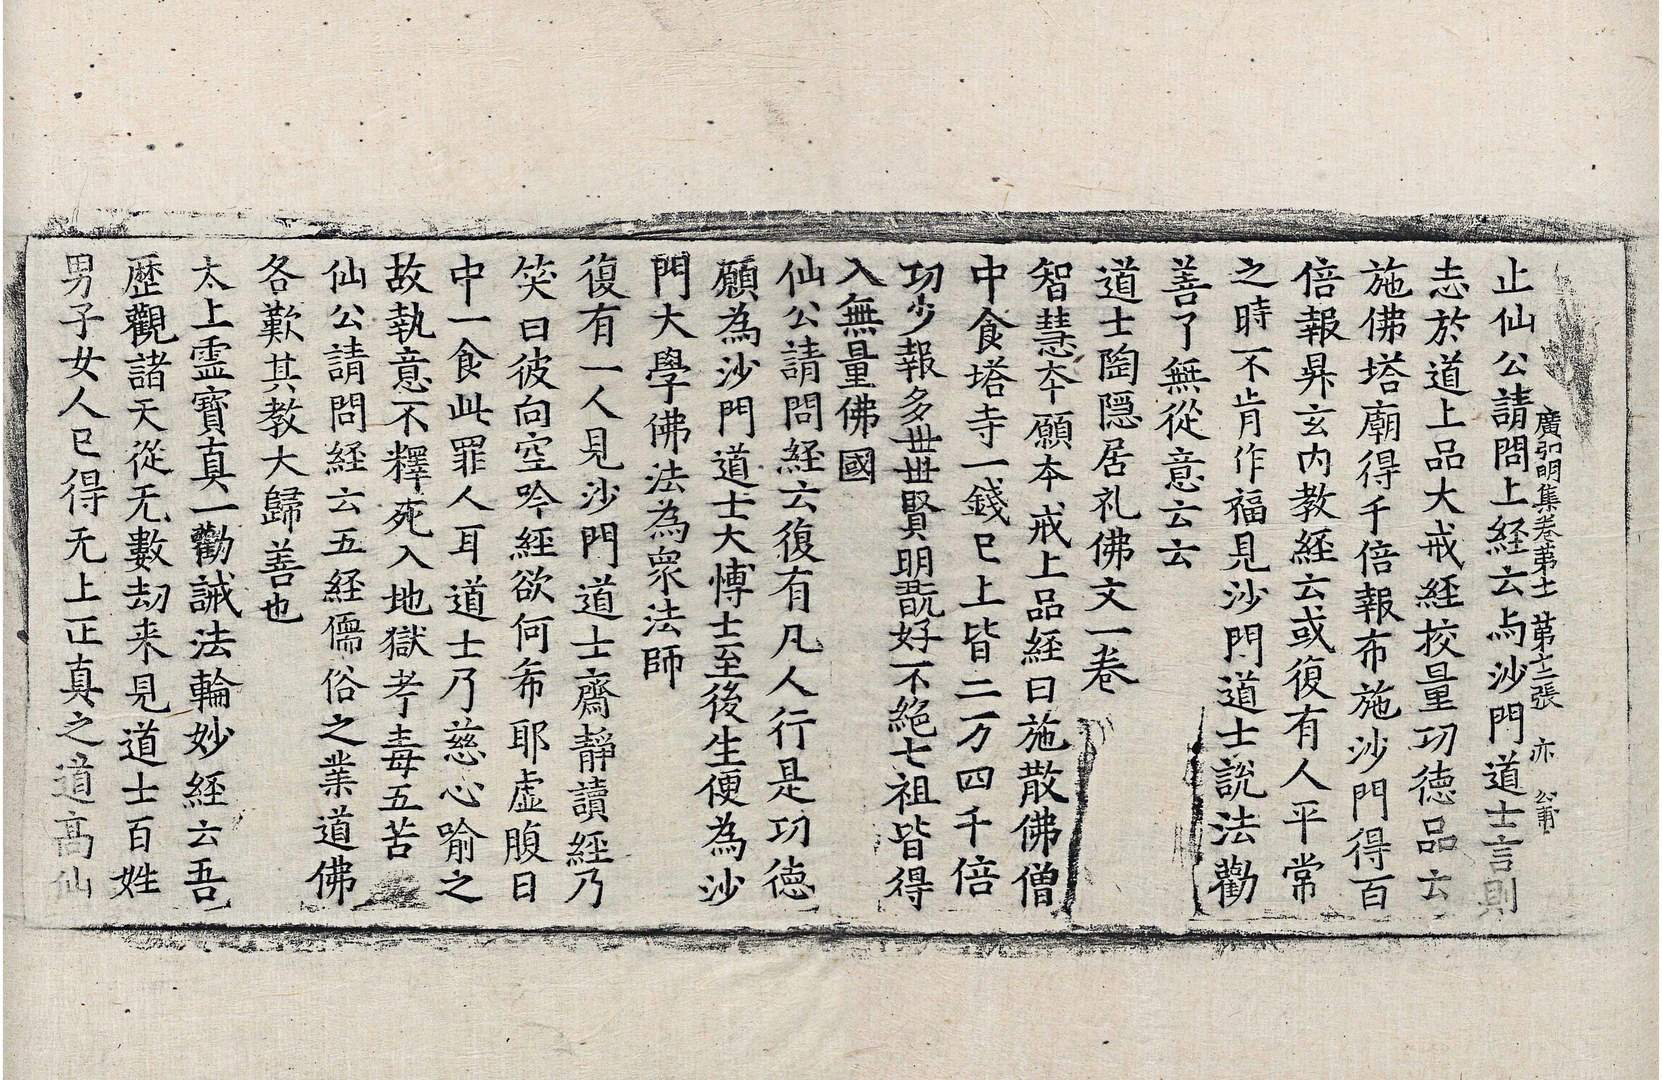 廣弘明集卷第十二 第十三張 亦
止仙公請問上経云與沙門道士言則
志於道上品大戒経挍量功德品云
施佛塔廟得千倍報布施沙門得百
倍報昇玄內教経云或復有人平常
之時不肯作福見沙門道士說法勸
善了無從意云云
道士陶隱居礼佛文一卷
智慧本願本戒上品經曰施散佛僧
中食塔寺一錢已上皆二万四千倍
功少報多世世賢明翫好不絕七祖皆得
入無量佛國
仙公請問経云復有凡人行是功德
願為沙門道士大博士至後生便為沙
門大學佛法為衆法師
復有一人見沙門道士齋靜讀經乃
笑曰彼向空吟經欲何希耶虛腹日
中一食此罪人耳道士乃慈心喻之
故執意不釋死入地獄考毒五苦
仙公請問経云五経儒俗之業道佛
各歎其教大歸善也
太上霊寶真一勸誡法輪妙經云吾
歷觀諸天從无數劫来見道士百姓
男子女人已得无上正真之道高仙